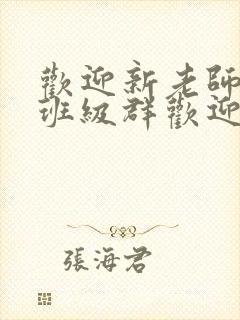 歡迎新老師
班級群歡迎
張海君